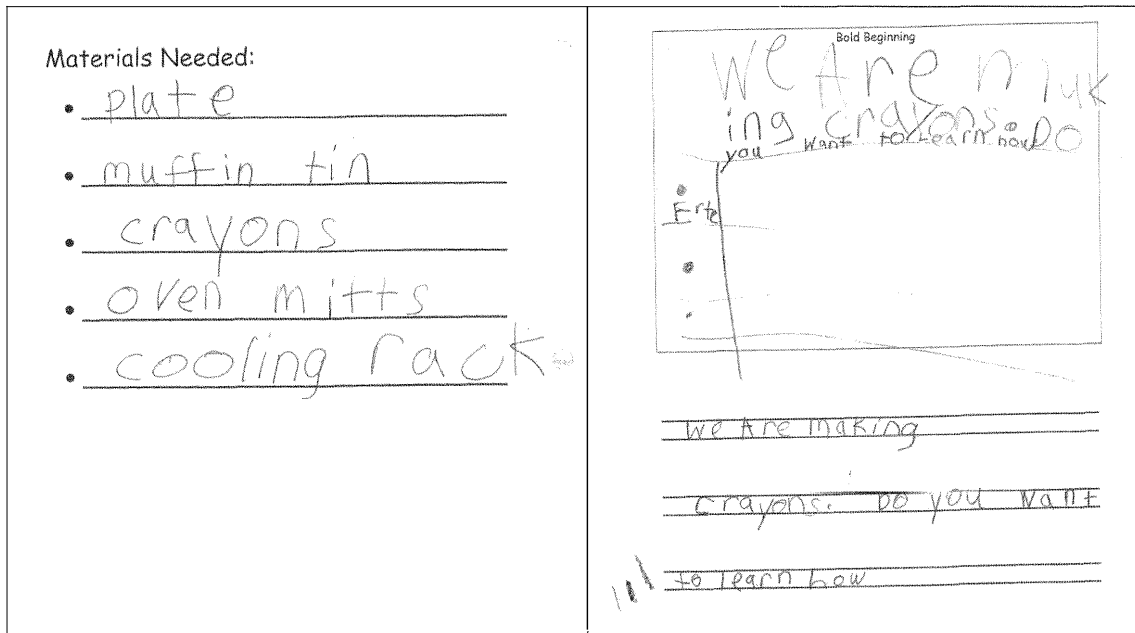 Materials Needed:
• plate
• muffin tin
• crayons
• oven mitts
• cooling rack
Bold Beginning
We Are muk
ing crayons. Do
you want to Learn how
We Are making
crayons. Do you Want
to learn how